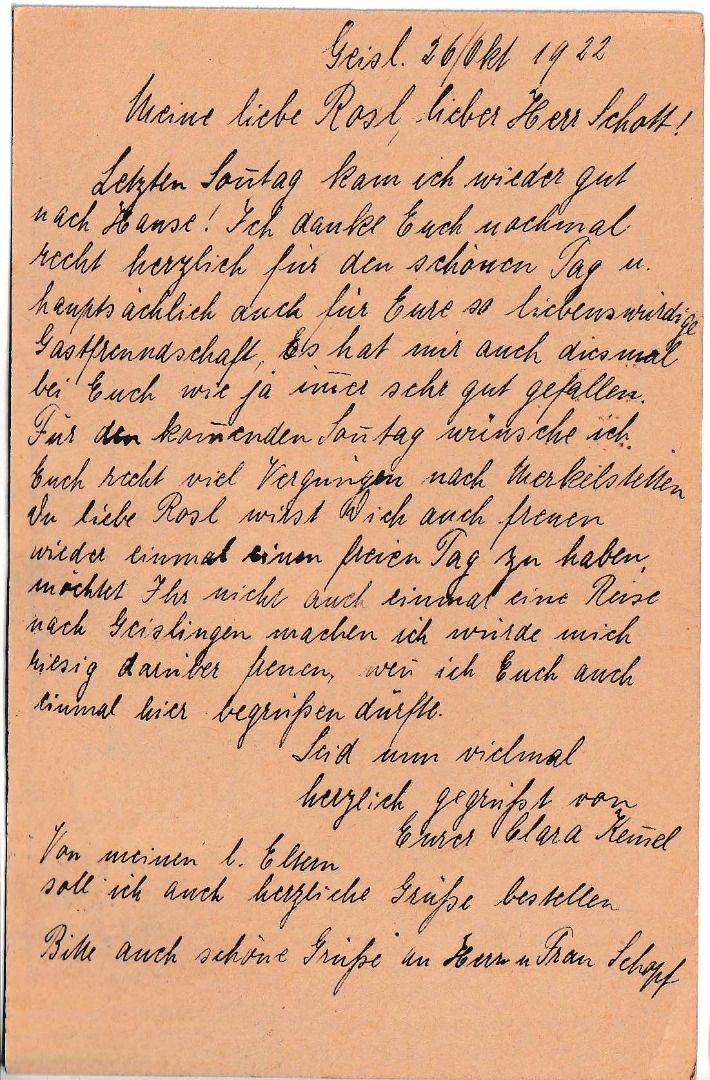 Geisl. 26/Okt 1922
Meine liebe Rosl, lieber Herr Schott!
Letzten Son̄tag kam ich wieder gut
nach Hause! Ich danke Euch nochmal
recht herzlich für den schönen Tag u.
hauptsächlich auch für Eure so liebenswürdige
Gastfreundschaft, Es hat mir auch diesmal
bei Euch wie ja im̄er sehr gut gefallen.
Für den kom̄enden Son̄tag wünsche ich
Euch recht viel Vergnügen nach Merkelstetten
Du liebe Rosl wirst Dich auch freuen
wieder einmal einen freien Tag zu haben,
möchtet Ihr nicht auch einmal eine Reise
nach Geislingen machen ich würde mich
riesig darüber freuen, wen̄ ich Euch auch
einmal hier begrüßen dürfte.
Seid nun vielmal
herzlich gegrüßt von
Eurer Clara
Von meinen l. Eltern
soll ich auch herzliche Grüße bestellen
Bitte auch schöne Grüße an Herrn u Frau Schopf